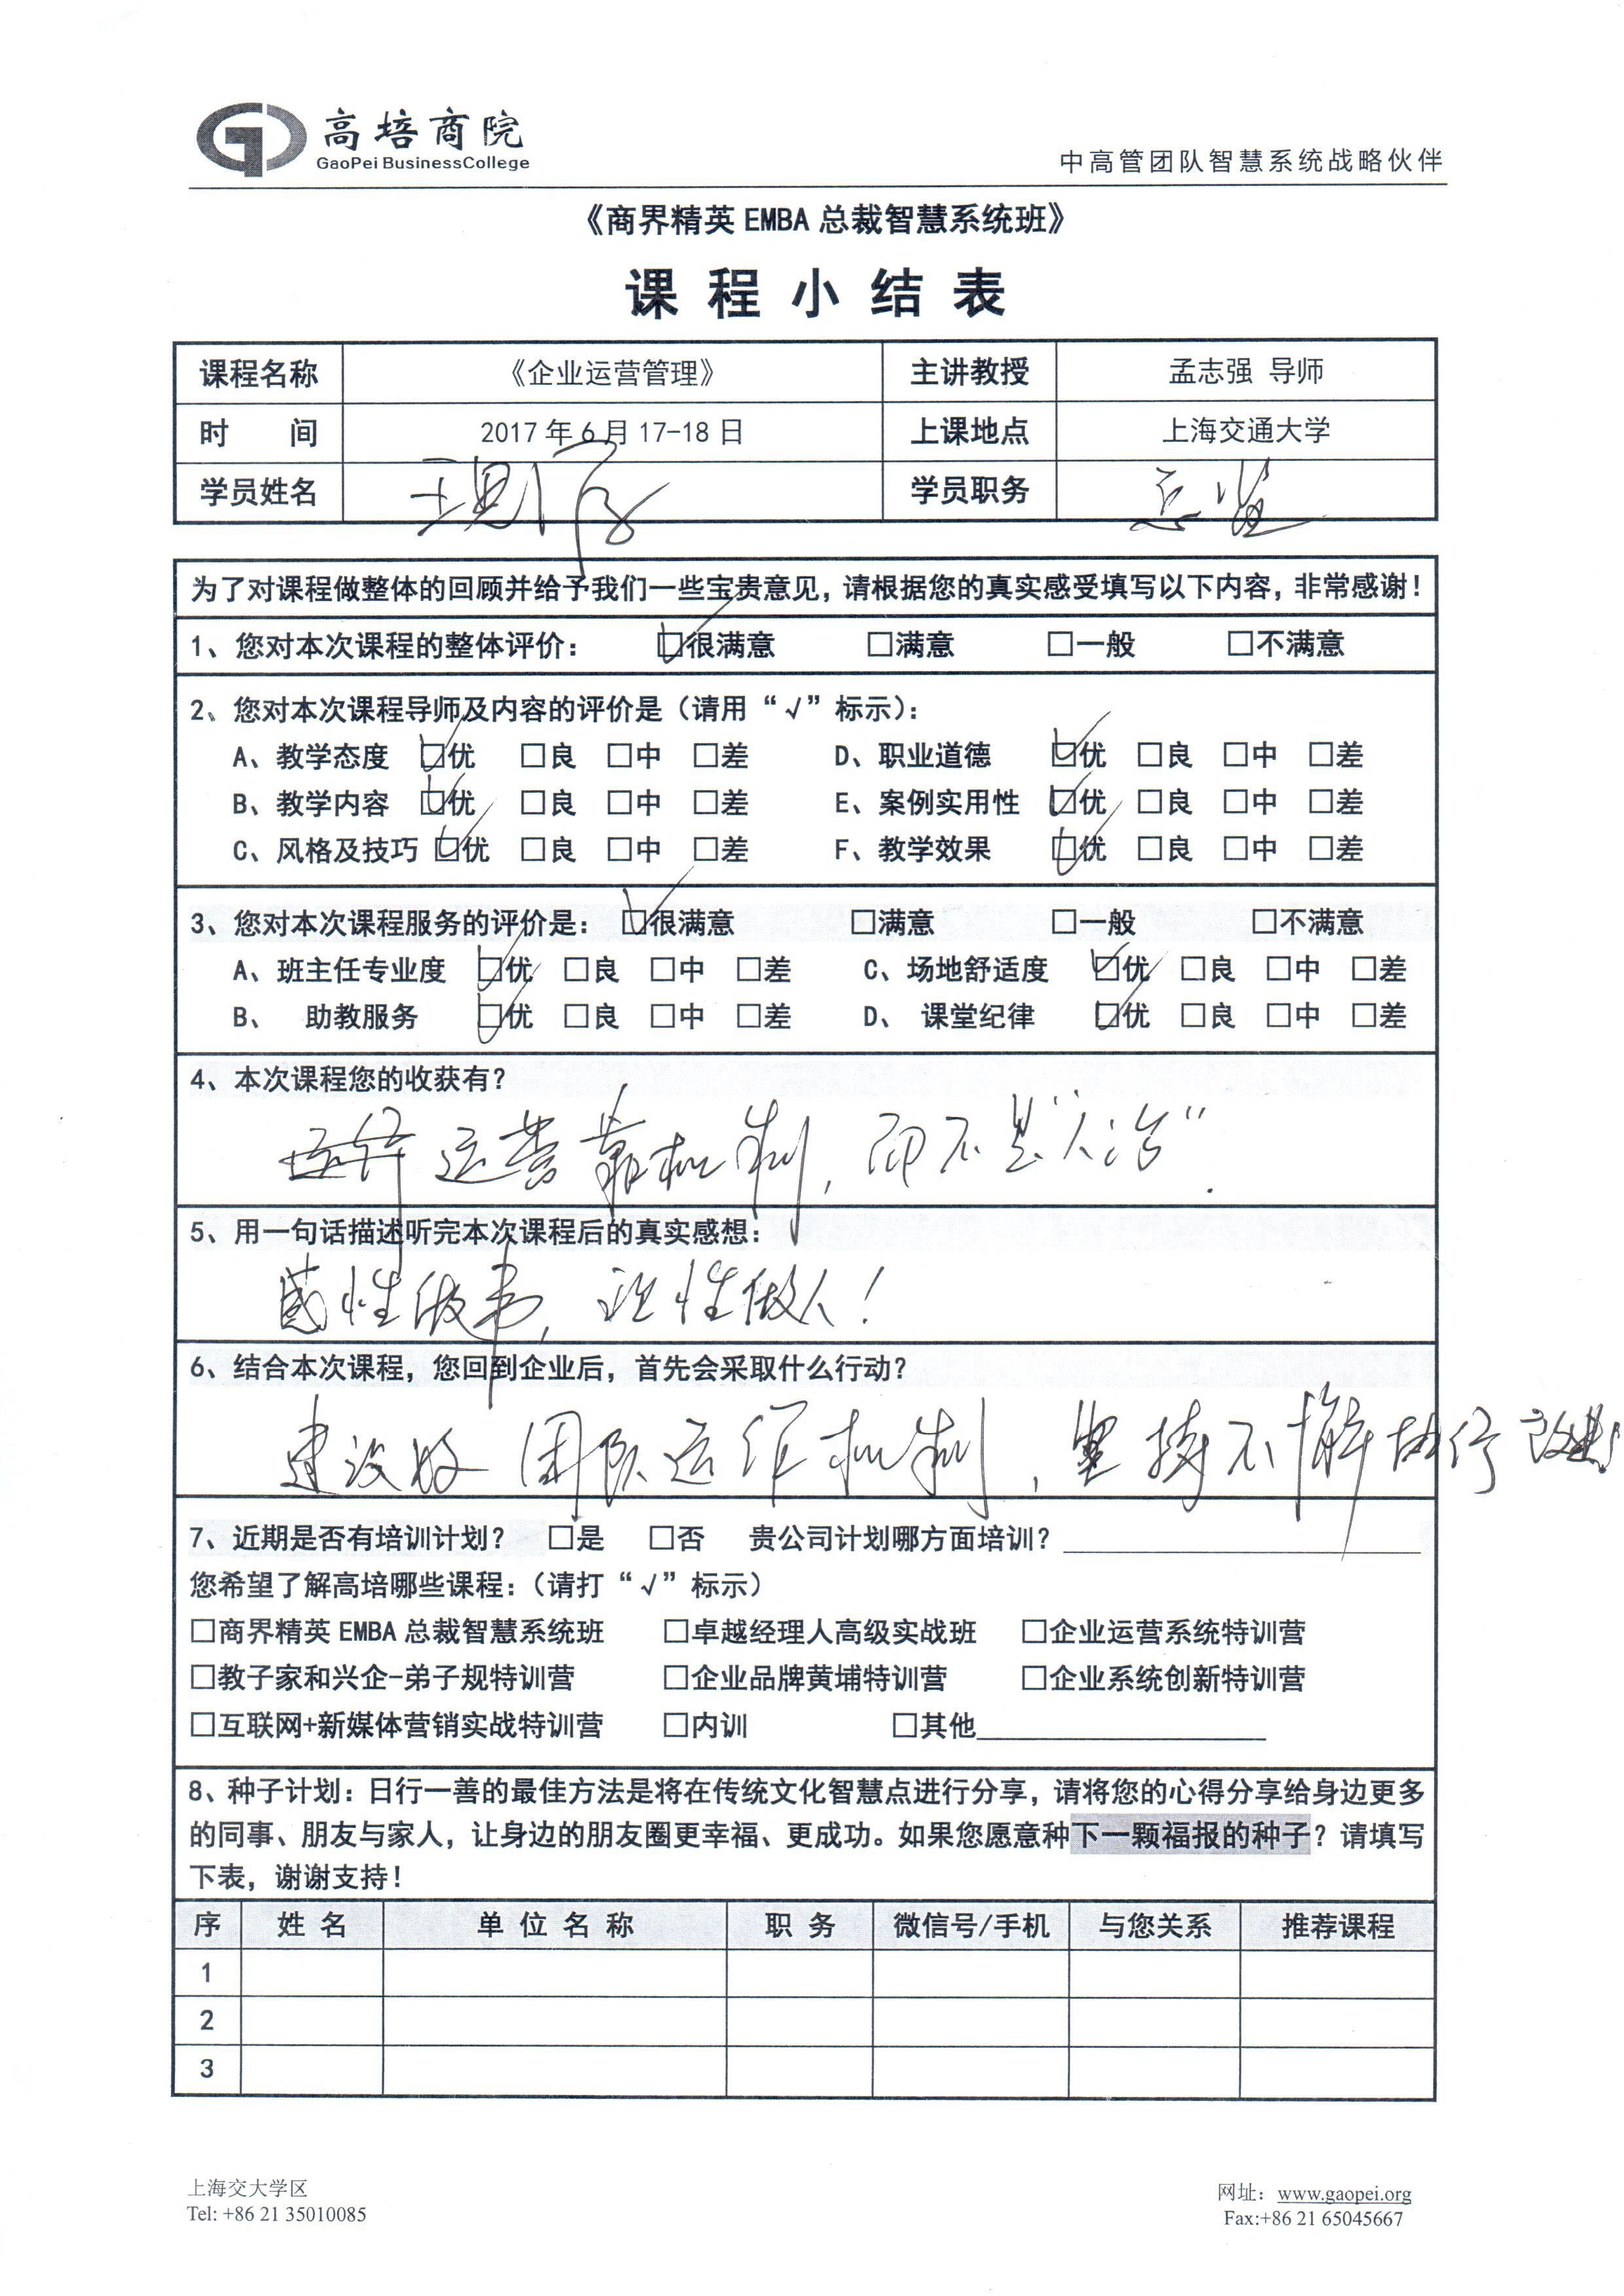 高培商院
GaoPei BusinessCollege
中高管团队智慧系统战略伙伴
《商界精英 EMBA 总裁智慧系统班》
课程小结表
课程名称 《企业运营管理》 主讲教授 孟志强 导师
时 间 2017 年 6 月 17-18 日 上课地点 上海交通大学
学员姓名 学员职务 总监
为了对课程做整体的回顾并给予我们一些宝贵意见，请根据您的真实感受填写以下内容，非常感谢！
1、您对本次课程的整体评价： ☑很满意 □满意 □一般 □不满意
2、您对本次课程导师及内容的评价是（请用“√”标示）：
A、教学态度 ☑优 □良 □中 □差 D、职业道德 ☑优 □良 □中 □差
B、教学内容 ☑优 □良 □中 □差 E、案例实用性 ☑优 □良 □中 □差
C、风格及技巧 ☑优 □良 □中 □差 F、教学效果 ☑优 □良 □中 □差
3、您对本次课程服务的评价是： ☑很满意 □满意 □一般 □不满意
A、班主任专业度 ☑优 □良 □中 □差 C、场地舒适度 ☑优 □良 □中 □差
B、 助教服务 ☑优 □良 □中 □差 D、 课堂纪律 ☑优 □良 □中 □差
4、本次课程您的收获有？
运营靠机制，而不是“人治”．
5、用一句话描述听完本次课程后的真实感想：
感性做事，理性做人！
6、结合本次课程，您回到企业后，首先会采取什么行动？
建设好团队运作机制，坚持不懈执行
7、近期是否有培训计划？ □是 □否 贵公司计划哪方面培训？
您希望了解高培哪些课程：（请打“√”标示）
□商界精英 EMBA 总裁智慧系统班 □卓越经理人高级实战班 □企业运营系统特训营
□教子家和兴企-弟子规特训营 □企业品牌黄埔特训营 □企业系统创新特训营
□互联网+新媒体营销实战特训营 □内训 □其他
8、种子计划：日行一善的最佳方法是将在传统文化智慧点进行分享，请将您的心得分享给身边更多
的同事、朋友与家人，让身边的朋友圈更幸福、更成功。如果您愿意种下一颗福报的种子？请填写
下表，谢谢支持！
序 姓 名 单 位 名 称 职 务 微信号/手机 与您关系 推荐课程
1
2
3
上海交大学区
Tel: +86 21 35010085
网址：www.gaopei.org
Fax:+86 21 65045667